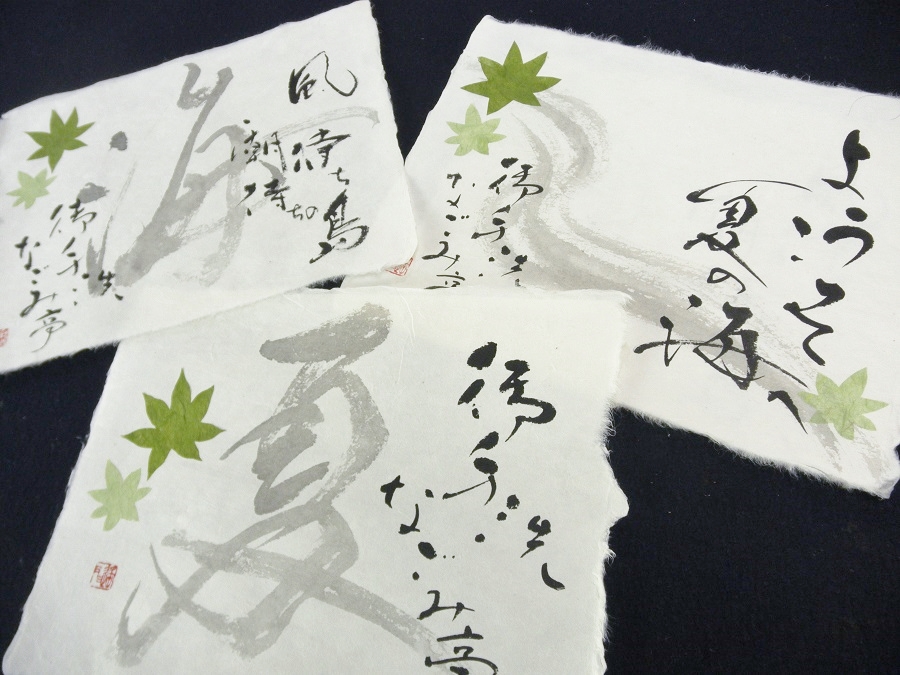 海
風
待ち
潮待ちの
島
御手洗
なごみ亭
ようこそ
夏の
海へ
御手洗
なごみ亭
夏
御手洗
なごみ亭